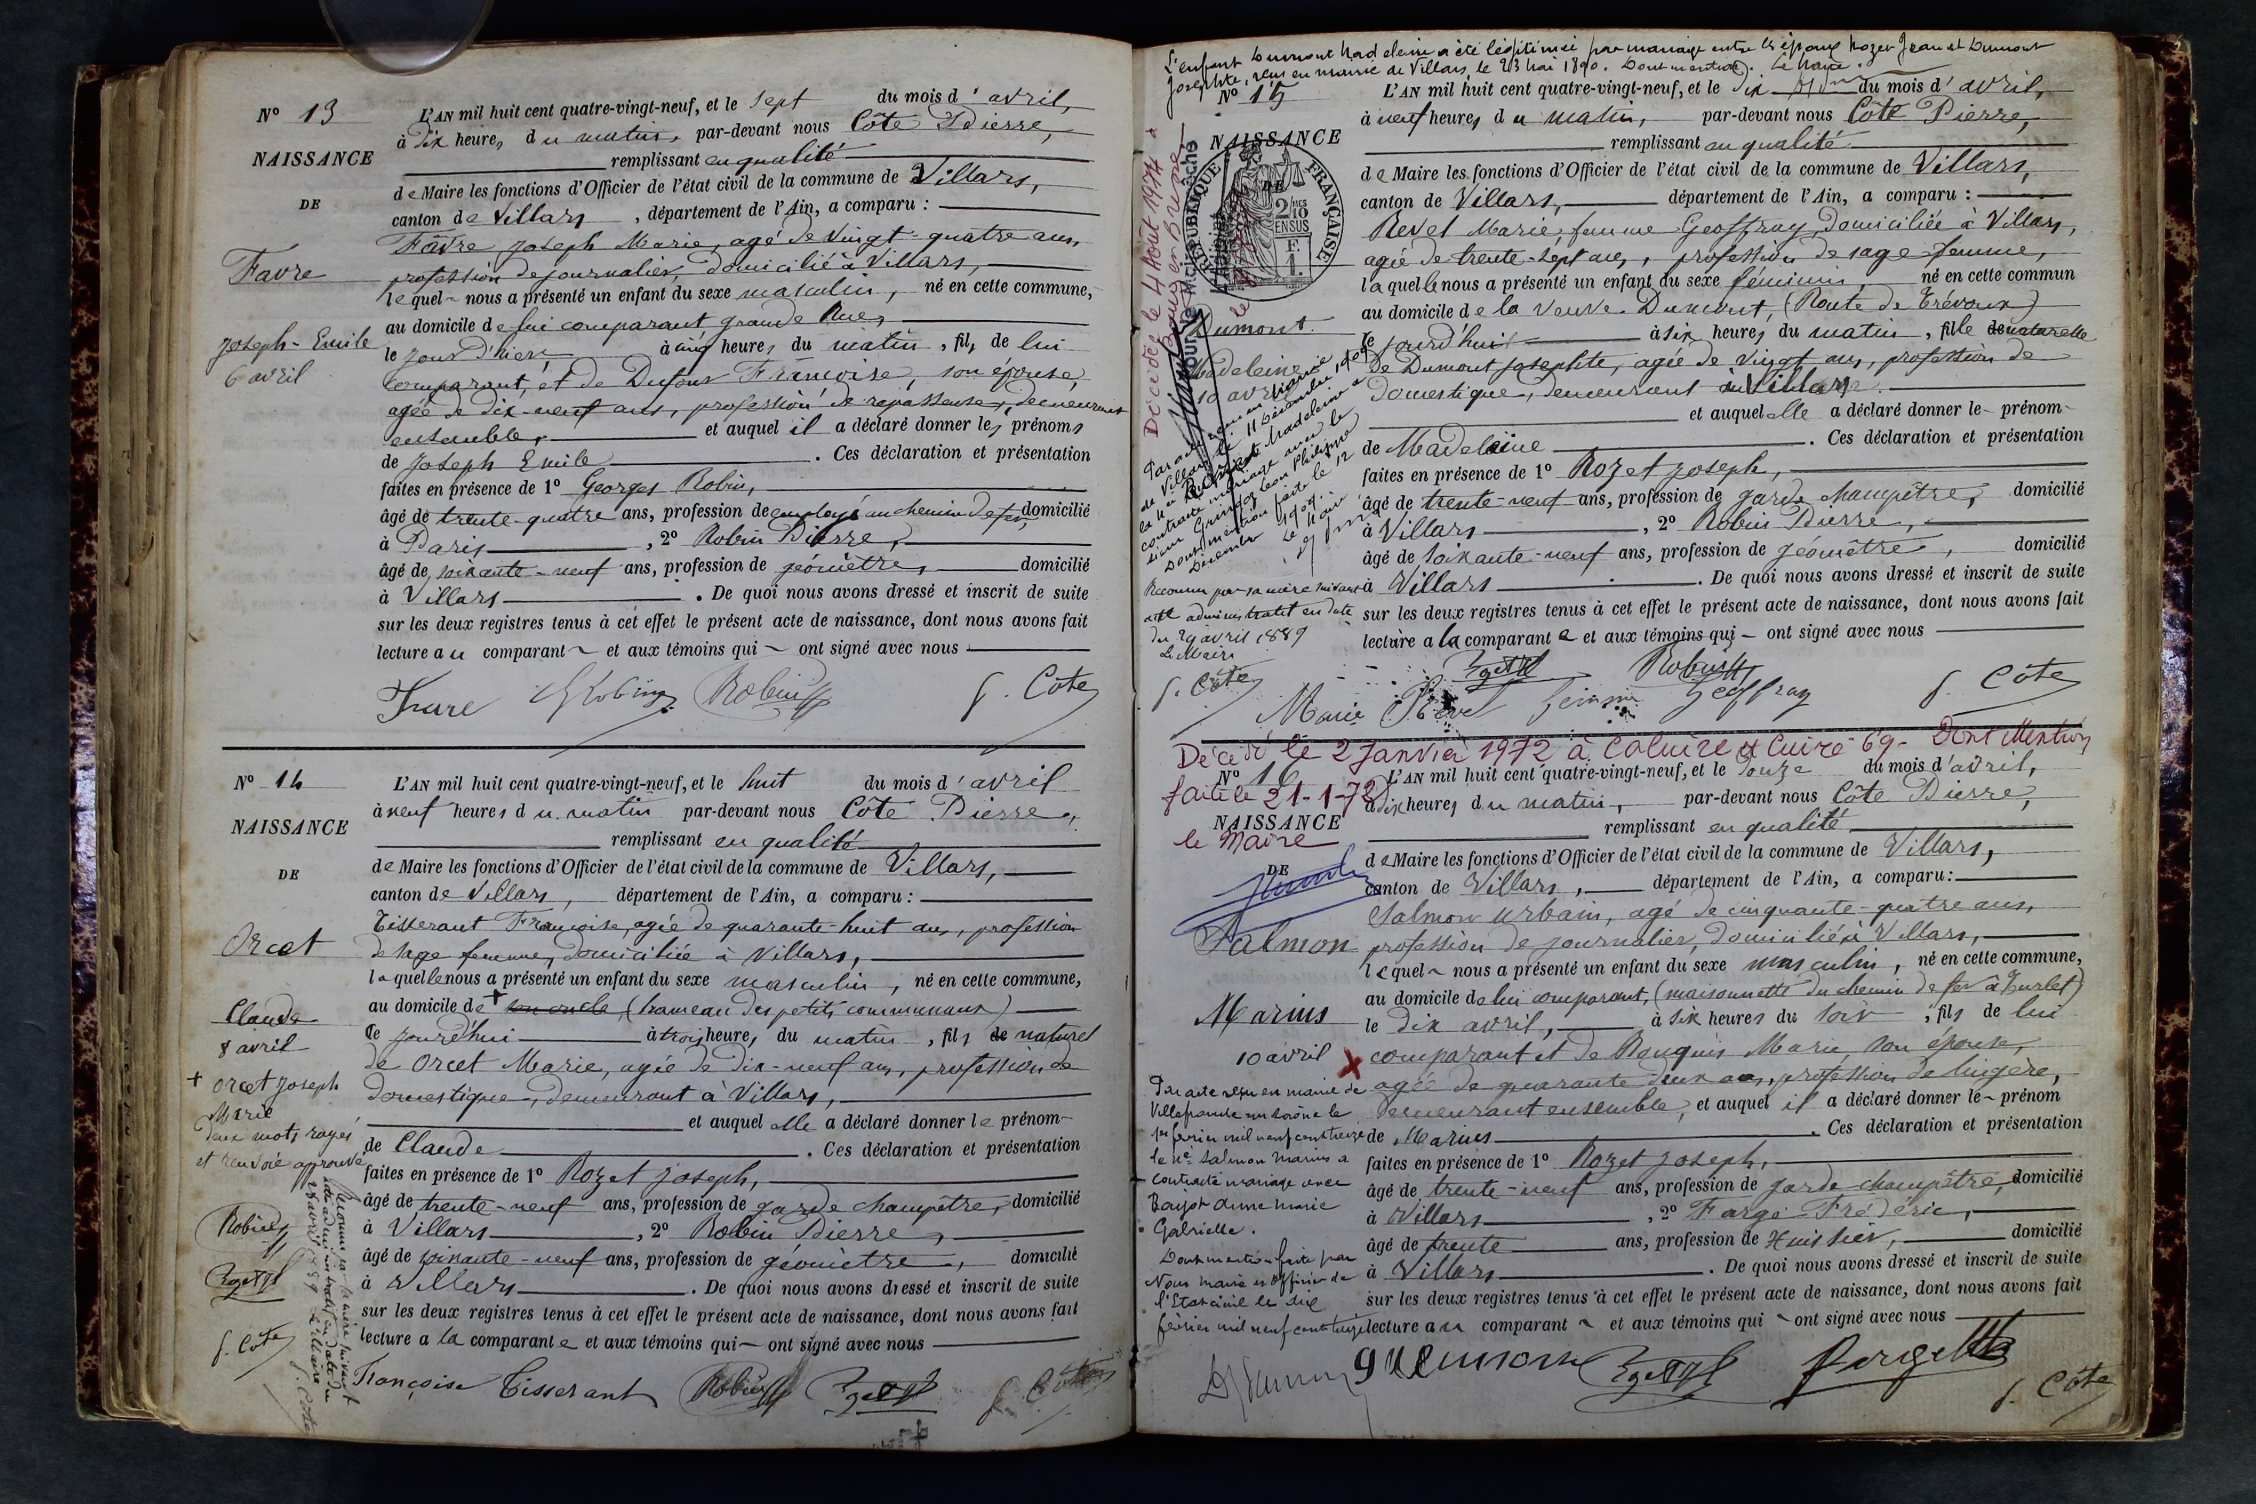 N° 13
NAISSANCE
DE
Favre
Joseph-Emile
6 avril
L'AN mil huit cent quatre-vingt-neuf, et le sept du mois d'avril,
à dix heures du matin, par-devant nous Côte Pierre,
remplissant en qualité
de Maire les fonctions d'Officier de l'état civil de la commune de Villars,
canton de Villars, département de l'Ain, a comparu :
Favre Joseph Marie, agé de vingt-quatre ans,
profession de journalier, domicilié à Villars,
lequel nous a présenté un enfant du sexe masculin, né en cette commune,
au domicile de lui comparant, grande Rue,
le jour d'hier, à cinq heures du matin, fils de lui
comparant, et de Dufour Françoise, son épouse,
agée de dix-neuf ans, profession de repasseuse, demeurant
ensemble, et auquel il a déclaré donner les prénoms
de Joseph Emile. Ces déclaration et présentation
faites en présence de 1° Georges Robin,
âgé de trente-quatre ans, profession de employé au chemin de fer, domicilié
à Paris, 2° Robin Pierre,
âgé de soixante-neuf ans, profession de géomètre, domicilié
à Villars. De quoi nous avons dressé et inscrit de suite
sur les deux registres tenus à cet effet le présent acte de naissance, dont nous avons fait
lecture au comparant et aux témoins qui ont signé avec nous
Favre G Robin Robin P. Côte
N° 14
NAISSANCE
DE
Orcet
Claude
8 avril
+ Orcet Joseph
Marie
deux mots rayés
et renvoi approuvé
Robin
Rozet
P. Côte
Reconnu par sa mère suivant
acte administratif en date du
28 avril 1889 Le Maire
P. Côte
L'AN mil huit cent quatre-vingt-neuf, et le huit du mois d'avril
à neuf heures du matin par-devant nous Côte Pierre,
remplissant en qualité
de Maire les fonctions d'Officier de l'état civil de la commune de Villars,
canton de Villars, département de l'Ain, a comparu :
Tisserant Françoise, agée de quarante-huit ans, profession
de sage femme, domiciliée à Villars,
laquelle nous a présenté un enfant du sexe masculin, né en cette commune,
au domicile de + son oncle (hameau des petits communaux)
ce jourd'hui à trois heures du matin, fils de naturel
de Orcet Marie, agée de dix-neuf ans, profession de
domestique, demeurant à Villars,
et auquel elle a déclaré donner le prénom
de Claude. Ces déclaration et présentation
faites en présence de 1° Rozet Joseph,
âgé de trente-neuf ans, profession de garde champêtre, domicilié
à Villars, 2° Robin Pierre,
âgé de soixante-neuf ans, profession de géomètre, domicilié
à Villars. De quoi nous avons dressé et inscrit de suite
sur les deux registres tenus à cet effet le présent acte de naissance, dont nous avons fait
lecture a la comparante et aux témoins qui ont signé avec nous
Françoise Tisserant Robin Rozet P. Côte
L'enfant Dumont Madeleine a été légitimée par mariage entre les époux Rozet Jean et Dumont
Josephte, reçu en mairie de Villars le 23 Mai 1890. Dont mention. Le Maire.
N° 15
NAISSANCE
DE
RÉPUBLIQUE FRANÇAISE
2/10 EN SUS
F. 1.
Décédée le 4 Août 1974 à
Bourg en Bresse
Dumont
Madeleine
10 avril
Par acte reçu en mairie
de Villars le 11 Décembre 1909
la nommée Madeleine a
contracté mariage avec le
sieur Léon Philippe
Dont mention faite le 12
Décembre 1909.
Le Maire
Reconnue par sa mère suivant
acte administratif en date
du 29 avril 1889
Le Maire
P. Côte
L'AN mil huit cent quatre-vingt-neuf, et le dix du mois d'avril,
à neuf heures du matin, par-devant nous Côte Pierre,
remplissant en qualité
de Maire les fonctions d'Officier de l'état civil de la commune de Villars,
canton de Villars, département de l'Ain, a comparu :
Revel Marie, femme Geoffray, domiciliée à Villars,
agée de trente-sept ans, profession de sage-femme,
laquelle nous a présenté un enfant du sexe féminin, né en cette commun
au domicile de la veuve Dumont, (Route de Trévoux)
ce jourd'hui à six heures du matin, fille de naturelle
de Dumont Josephte, agée de vingt ans, profession de
domestique, demeurant à Villars
et auquel elle a déclaré donner le prénom
de Madeleine. Ces déclaration et présentation
faites en présence de 1° Rozet Joseph,
âgé de trente-neuf ans, profession de garde champêtre, domicilié
à Villars, 2° Robin Pierre,
âgé de soixante-neuf ans, profession de géomètre, domicilié
à Villars. De quoi nous avons dressé et inscrit de suite
sur les deux registres tenus à cet effet le présent acte de naissance, dont nous avons fait
lecture a la comparante et aux témoins qui ont signé avec nous
Rozet Robin
Marie Revel femme Geoffray P. Côte
Décédé le 2 Janvier 1972 à Caluire et Cuire-69- Dont Mention
faite le 21-1-72
le Maire
N° 16
NAISSANCE
DE
Salmon
Marius
10 avril
Par acte reçu en mairie de
Villefranche sur Saône le
1er février mil neuf cent treize
le né Salmon Marius a
contracté mariage avec
Anne Marie
Gabrielle.
Dont mention faite par
Nous Maire et Officier de
l'Etat civil le dix
février mil neuf cent treize
L'AN mil huit cent quatre-vingt-neuf, et le douze du mois d'avril,
à dix heures du matin, par-devant nous Côte Pierre,
remplissant en qualité
de Maire les fonctions d'Officier de l'état civil de la commune de Villars,
canton de Villars, département de l'Ain, a comparu :
Salmon Urbain, agé de cinquante-quatre ans,
profession de journalier, domicilié à Villars,
lequel nous a présenté un enfant du sexe masculin, né en cette commune,
au domicile de lui comparant, (maisonnette du chemin de fer à Turlet)
le dix avril, à six heures du soir, fils de lui
comparant et de Bouquin Marie, son épouse,
agée de quarante deux ans, profession de lingère,
demeurant ensemble, et auquel il a déclaré donner le prénom
de Marius. Ces déclaration et présentation
faites en présence de 1° Rozet Joseph,
âgé de trente-neuf ans, profession de garde champêtre, domicilié
à Villars, 2° Farge Frédéric,
âgé de trente ans, profession de Huissier, domicilié
à Villars. De quoi nous avons dressé et inscrit de suite
sur les deux registres tenus à cet effet le présent acte de naissance, dont nous avons fait
lecture au comparant et aux témoins qui ont signé avec nous
Rozet Farge P. Côte